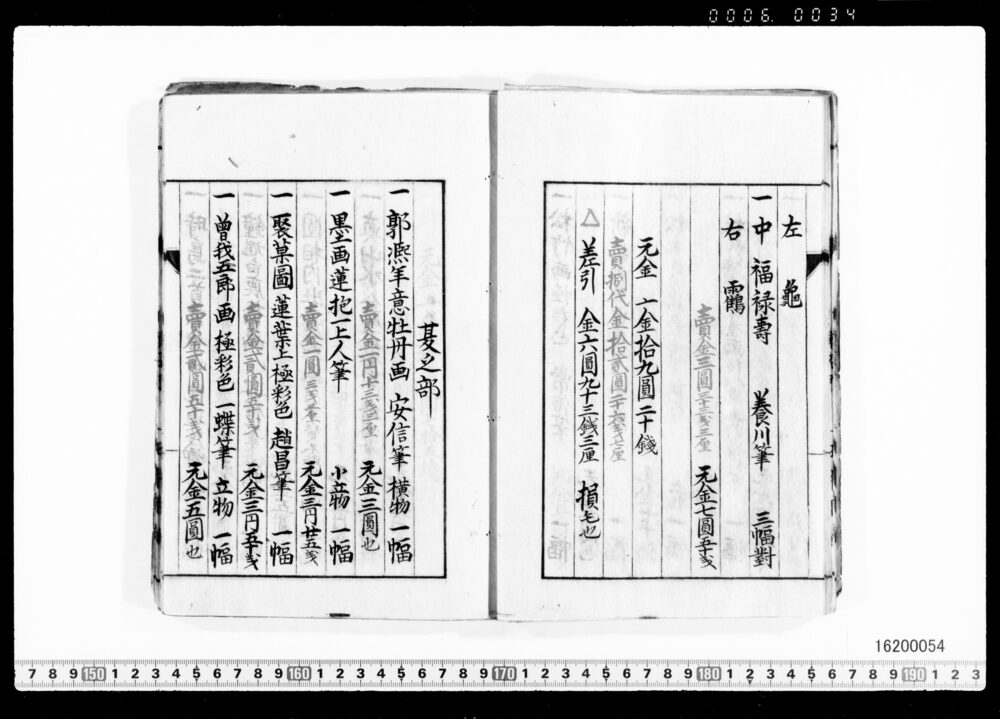 0006.0034
左 龜
一 中 福禄壽 養川筆 三幅對
右 靏
賣金三圓二十三戋三厘 元金七圓五十戋
元金 〆金拾九圓二十錢
賣捌代金拾貳圓二十六戋七厘
△ 差引 金六圓九十三錢三厘 損毛也
其之部
一 郭熈筆意牡丹画 安信筆 横物 一幅
賣金二円十三戋三厘 元金三圓也
一 墨画蓮 抱一上人筆 小立物 一幅
賣金一圓 元金三円廿五戋
一 聚菓圖 蓮葉上極彩色 趙昌筆 一幅
賣金三圓五十戋 元金三円五十戋
一 曽我五郎画 極彩色 一蝶筆 立物 一幅
賣金三圓五十戋 元金五圓也
16200054
7 8 9 150 1 2 3 4 5 6 7 8 9 160 1 2 3 4 5 6 7 8 9 170 1 2 3 4 5 6 7 8 9 180 1 2 3 4 5 6 7 8 9 190 1 2 3